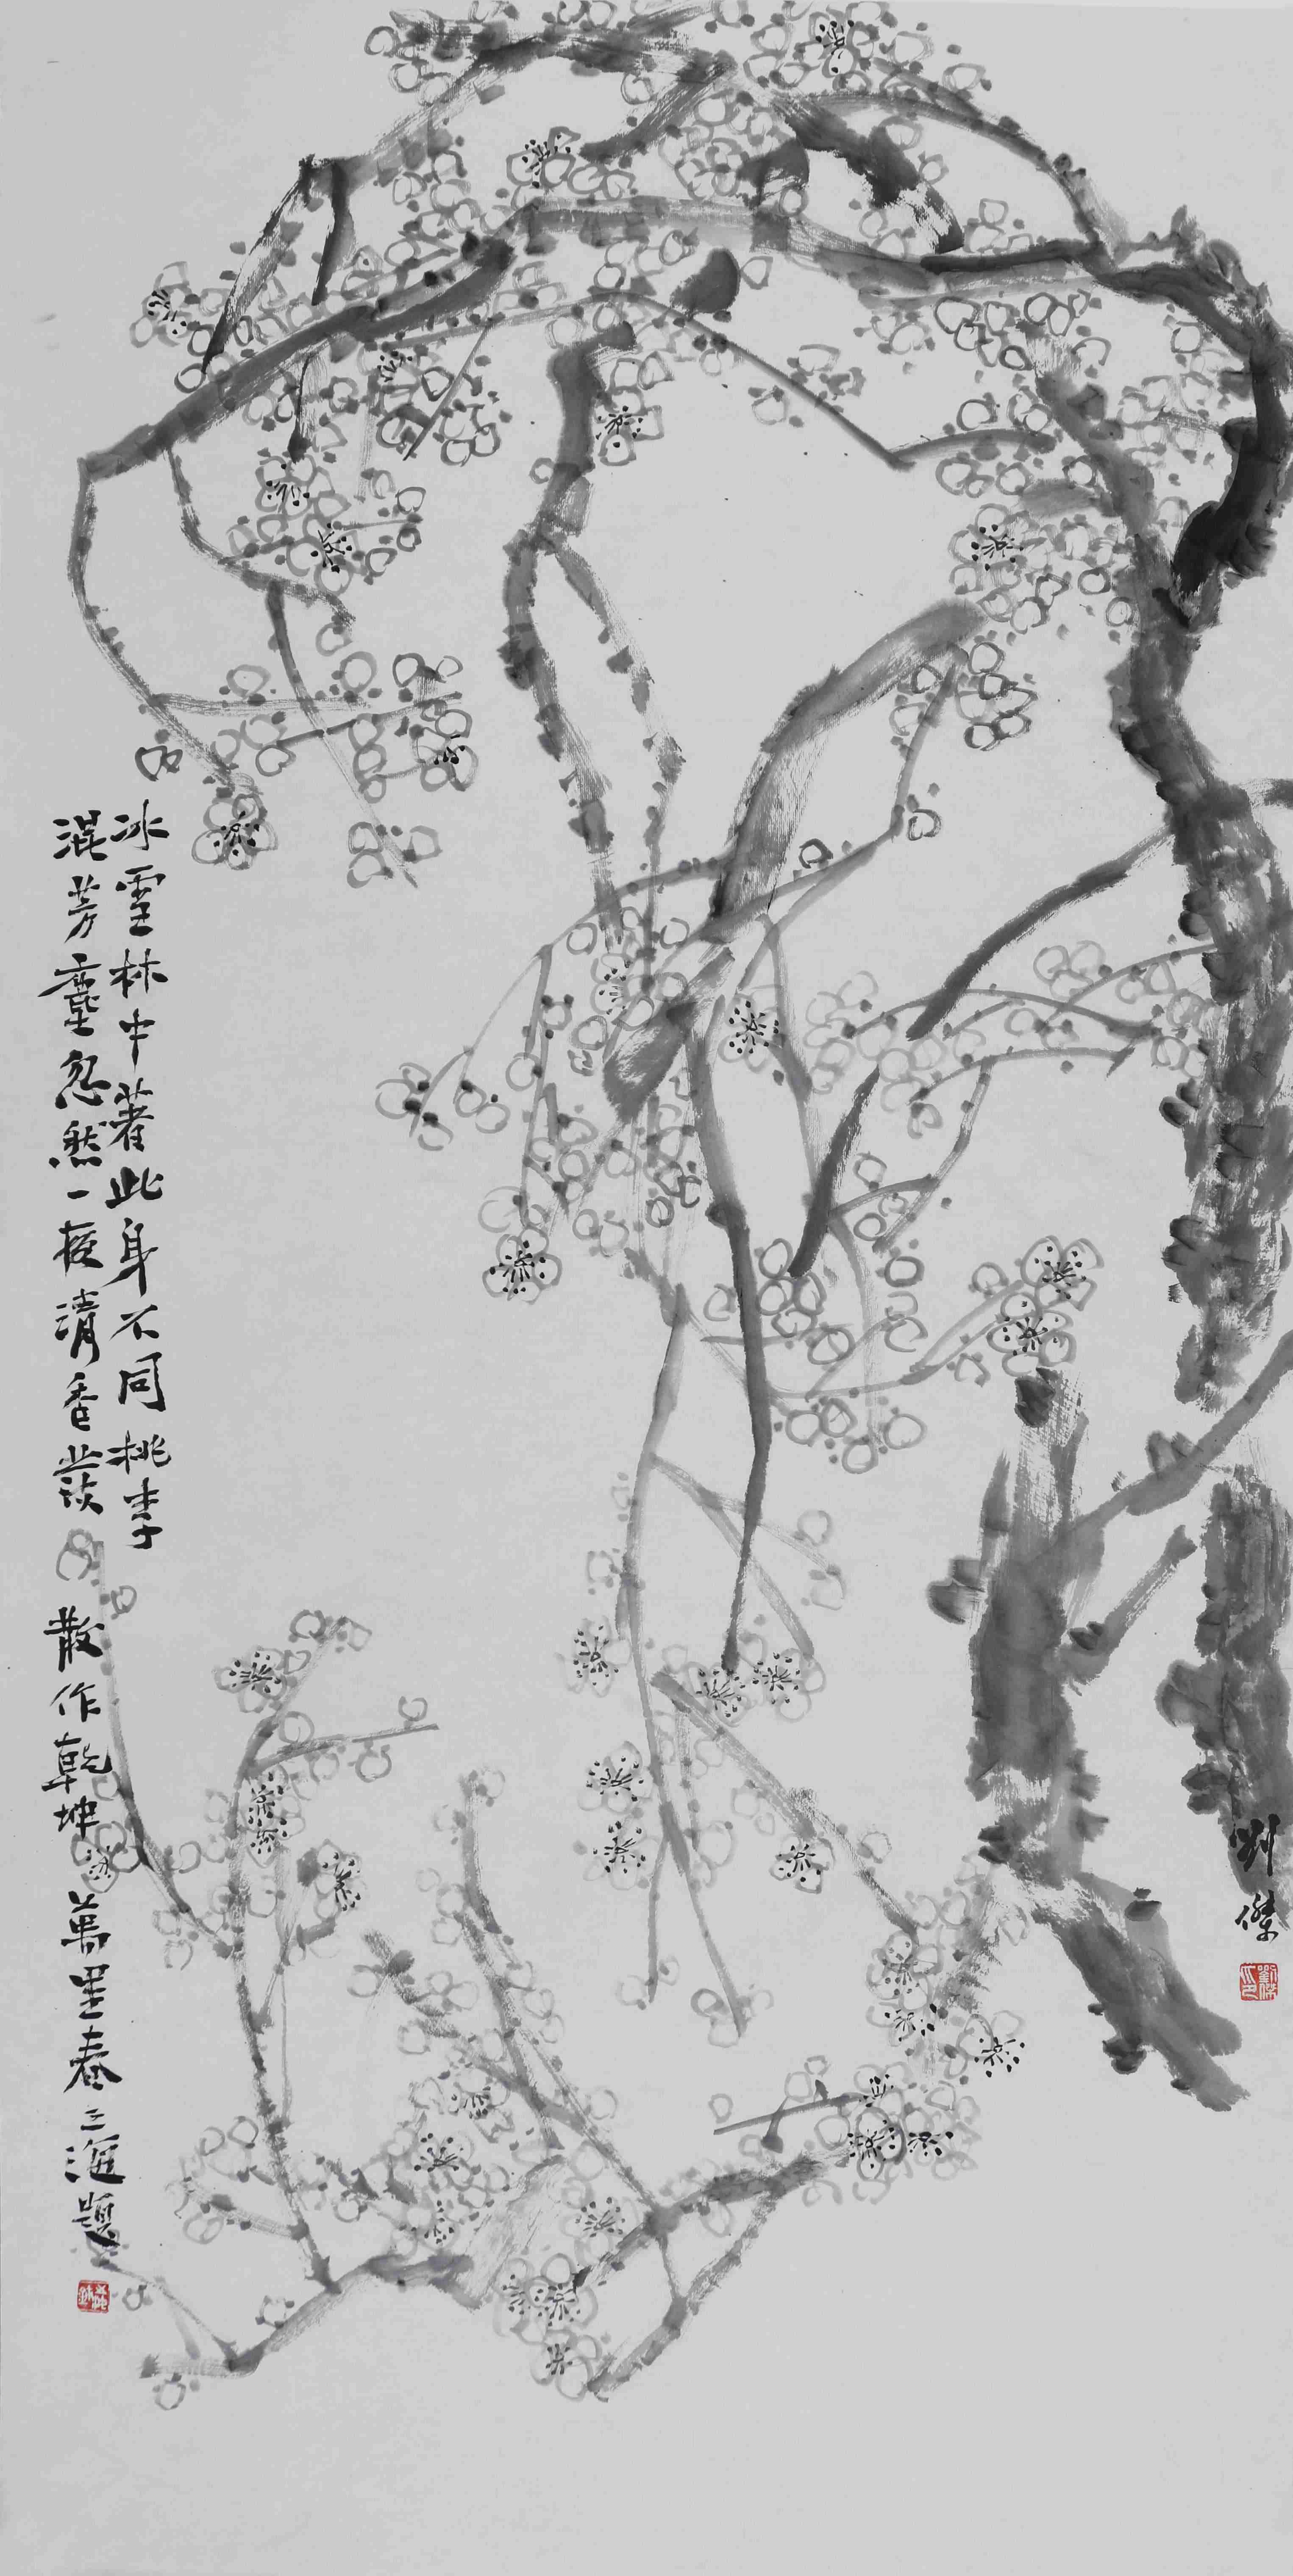 冰雪林中著此身不同桃李
混芳塵忽然一夜清香發散作乾坤萬里春三海題
刘傑
劉傑印